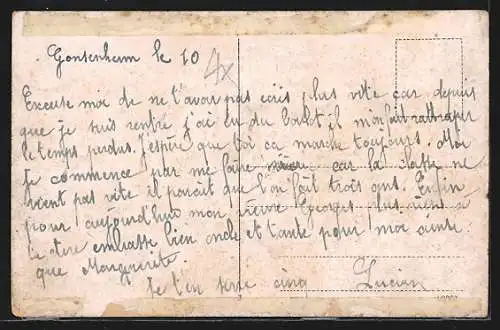 Gonsenheim le 10
4x
Excuse moi de ne t'avoir pas écris plus vite car depuis
que je suis rentré j'ai eu du boulot il m'on fait rattraper
le temps perdus. j'espère que toi ca marche toujours. Moi
je commence par me faire car la classe ne
vient pas vite il parait que l'on fait trois ans. Enfin
pour aujourd'hui mon vieux Georges plus rien a
te dire embrasse bien oncle et tante pour moi ainsi
que Marguerite.
Je t'en serre cinq Lucien